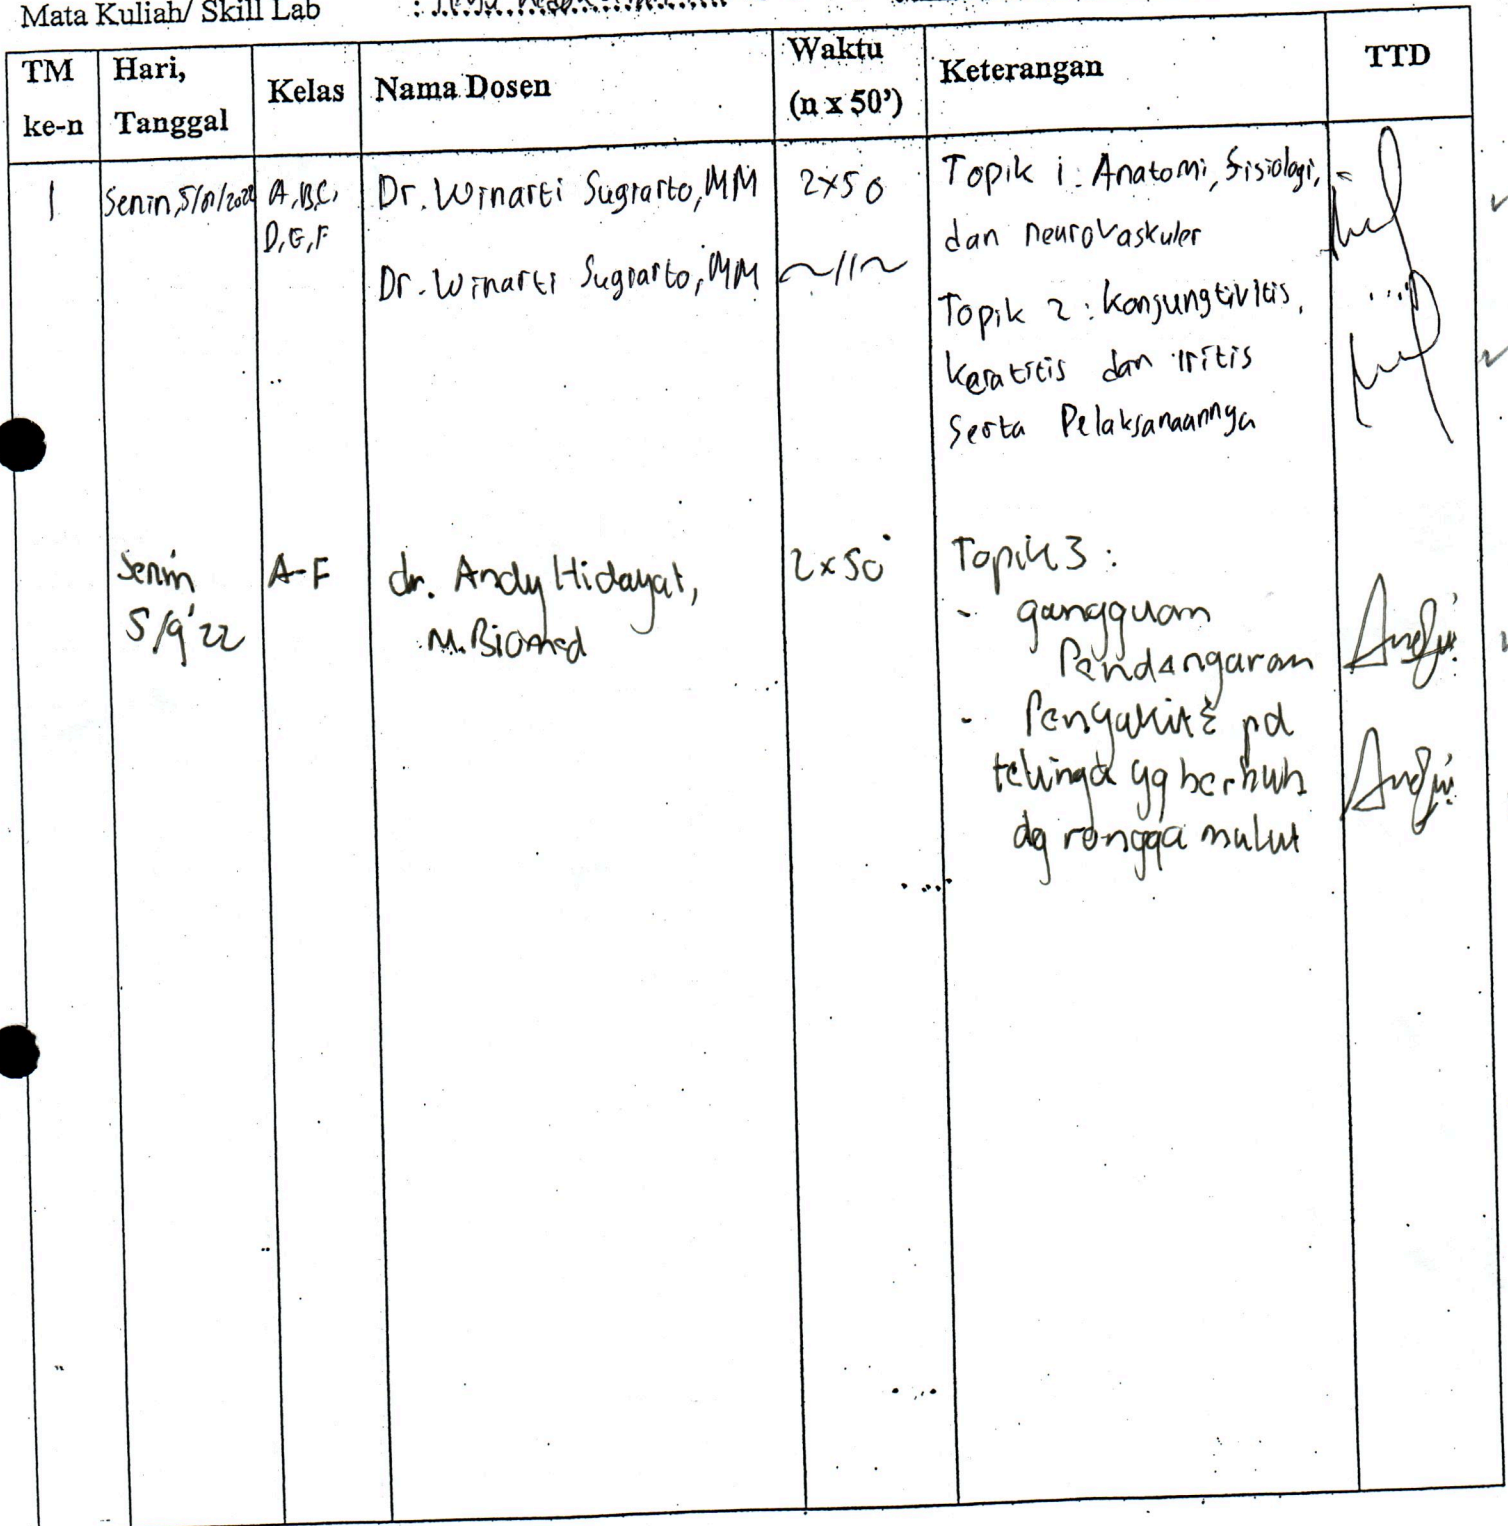 Mata Kuliah/ Skill Lab :
TM ke-n
Hari, Tanggal
Kelas
Nama Dosen
Waktu (n x 50')
Keterangan
TTD
1
Senin, 5/9/2022
A, B, C,
D, E, F
Dr. Winarti Sugiarto, MM
2x50
Topik 1 : Anatomi, fisiologi,
dan neurovaskuler
Dr. Winarti Sugiarto, MM
~//~
Topik 2 : Konjungtivitis,
keratitis dan iritis
Serta Pelaksanaannya
Senin
5/9'22
A-F
dr. Andy Hidayat,
M.Biomed
2x50'
Topik 3 :
- gangguan
Pendengaran
- Penyakit2 pd
telinga yg berhub
dg rongga mulut